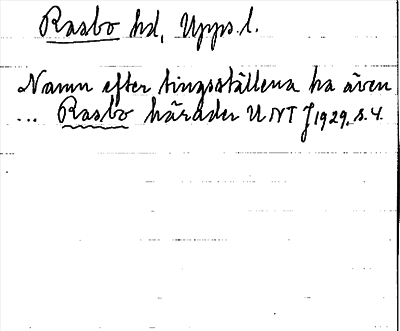 Rasbo hd, Upps. l.
Namn efter tingsställena ha även
... Rasbo härader UNT J 1929. s. 4.